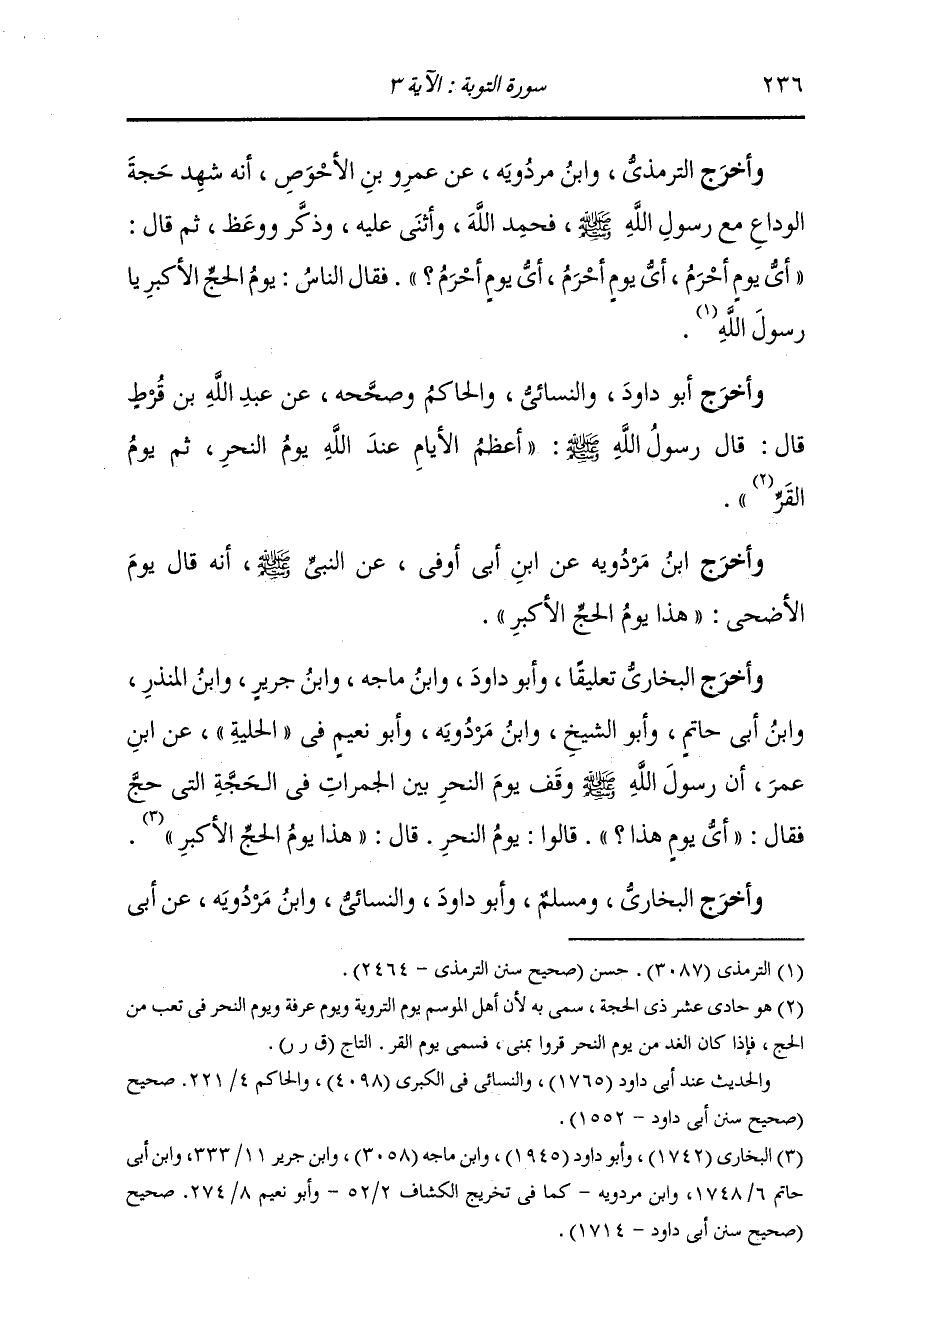 ٢٣٦ سورة التوبة : الآية ٣
وأخرَج الترمذىُّ ، وابنُ مردُويَه ، عن عمرِو بنِ الأحْوَصِ ، أنه شهِد حَجةَ
الوداعِ مع رسولِ اللَّهِ ﷺ ، فحمِد اللَّهَ ، وأثنَى عليه ، وذكَّر ووعَظ ، ثم قال :
« أىُّ يومٍ أحْرَمُ ، أىُّ يومٍ أحْرَمُ ، أىُّ يومٍ أحْرَمُ ؟ » . فقال الناسُ : يومُ الحجِّ الأكبرِ يا
رسولَ اللَّهِ (١) .
وأخرَج أبو داودَ ، والنسائىُّ ، والحاكمُ وصحَّحه ، عن عبدِ اللَّهِ بن قُرْطٍ
قال : قال رسولُ اللَّهِ ﷺ : « أعظمُ الأيامِ عندَ اللَّهِ يومُ النحرِ ، ثم يومُ
القَرِّ (٢) » .
وأخرَج ابنُ مَرْدُويه عن ابنِ أبى أوفى ، عن النبىِّ ﷺ ، أنه قال يومَ
الأضحى : « هذا يومُ الحجِّ الأكبرِ » .
وأخرَج البخارىُّ تعليقًا ، وأبو داودَ ، وابنُ ماجه ، وابنُ جريرٍ ، وابنُ المنذرِ ،
وابنُ أبى حاتمٍ ، وأبو الشيخِ ، وابنُ مَرْدُويَه ، وأبو نعيمٍ فى « الحليةِ » ، عن ابنِ
عمرَ ، أن رسولَ اللَّهِ ﷺ وقَف يومَ النحرِ بين الجمراتِ فى الحَجَّةِ التى حجَّ
فقال : « أىُّ يومٍ هذا ؟ » . قالوا : يومُ النحرِ . قال : « هذا يومُ الحجِّ الأكبرِ » (٣) .
وأخرَج البخارىُّ ، ومسلمٌ ، وأبو داودَ ، والنسائىُّ ، وابنُ مَرْدُويَه ، عن أبى
(١) الترمذى (٣٠٨٧) . حسن (صحيح سنن الترمذى - ٢٤٦٤) .
(٢) هو حادى عشر ذى الحجة ، سمى به لأن أهل الموسم يوم التروية ويوم عرفة ويوم النحر فى تعب من
الحج ، فإذا كان الغد من يوم النحر قروا بمنى ، فسمى يوم القر . التاج (ق ر ر) .
والحديث عند أبى داود (١٧٦٥) ، والنسائى فى الكبرى (٤٠٩٨) ، والحاكم ٤/ ٢٢١. صحيح
(صحيح سنن أبى داود - ١٥٥٢) .
(٣) البخارى (١٧٤٢) ، وأبو داود (١٩٤٥) ، وابن ماجه (٣٠٥٨) ، وابن جرير ١١/ ٣٣٣، وابن أبى
حاتم ٦/ ١٧٤٨، وابن مردويه - كما فى تخريج الكشاف ٥٢/٢ - وأبو نعيم ٨/ ٢٧٤. صحيح
(صحيح سنن أبى داود - ١٧١٤) .